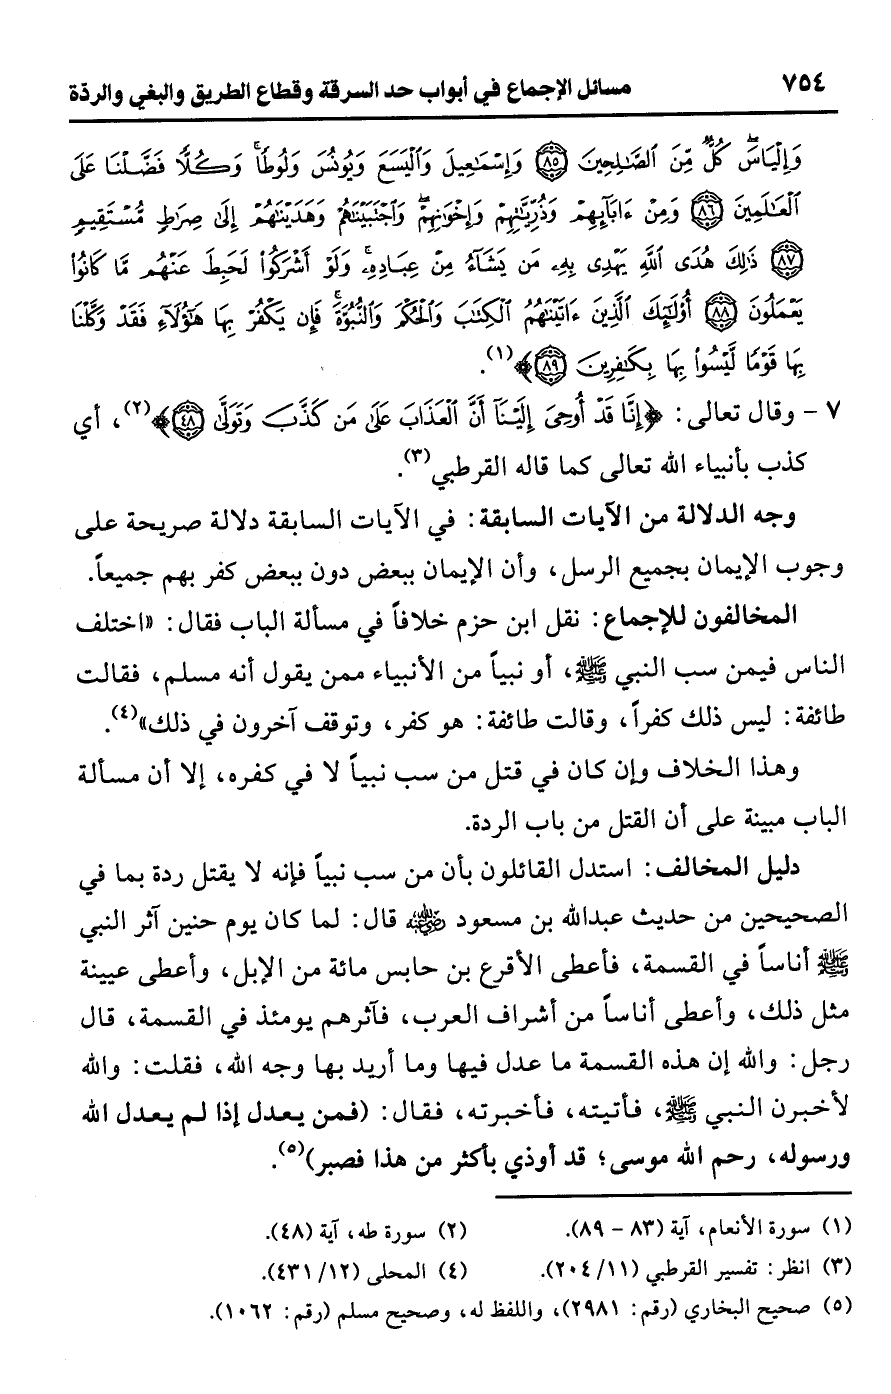 ٧٥٤ مسائل الإجماع في أبواب حد السرقة وقطاع الطريق والبغي والردّة
وَإِلْيَاسَ كُلٌّ مِّنَ الصَّالِحِينَ ٨٥ وَإِسْمَاعِيلَ وَالْيَسَعَ وَيُونُسَ وَلُوطًا وَكُلًّا فَضَّلْنَا عَلَى
الْعَالَمِينَ ٨٦ وَمِنْ ءَابَآئِهِمْ وَذُرِّيَّاتِهِمْ وَإِخْوَانِهِمْ وَاجْتَبَيْنَاهُمْ وَهَدَيْنَاهُمْ إِلَى صِرَاطٍ مُّسْتَقِيمٍ
٨٧ ذَلِكَ هُدَى اللَّهِ يَهْدِى بِهِ مَن يَشَآءُ مِنْ عِبَادِهِ وَلَوْ أَشْرَكُوا لَحَبِطَ عَنْهُم مَّا كَانُوا
يَعْمَلُونَ ٨٨ أُولَئِكَ الَّذِينَ ءَاتَيْنَاهُمُ الْكِتَابَ وَالْحُكْمَ وَالنُّبُوَّةَ فَإِن يَكْفُرْ بِهَا هَؤُلَاءِ فَقَدْ وَكَّلْنَا
بِهَا قَوْمًا لَّيْسُوا بِهَا بِكَافِرِينَ ٨٩﴾(١).
٧ - وقال تعالى: ﴿إِنَّا قَدْ أُوحِىَ إِلَيْنَآ أَنَّ الْعَذَابَ عَلَى مَن كَذَّبَ وَتَوَلَّى ٤٨﴾(٢)، أي
كذب بأنبياء الله تعالى كما قاله القرطبي(٣).
وجه الدلالة من الآيات السابقة: في الآيات السابقة دلالة صريحة على
وجوب الإيمان بجميع الرسل، وأن الإيمان ببعض دون ببعض كفر بهم جميعاً.
المخالفون للإجماع: نقل ابن حزم خلافاً في مسألة الباب فقال: «اختلف
الناس فيمن سب النبي ﷺ، أو نبياً من الأنبياء ممن يقول أنه مسلم، فقالت
طائفة: ليس ذلك كفراً، وقالت طائفة: هو كفر، وتوقف آخرون في ذلك»(٤).
وهذا الخلاف وإن كان في قتل من سب نبياً لا في كفره، إلا أن مسألة
الباب مبينة على أن القتل من باب الردة.
دليل المخالف: استدل القائلون بأن من سب نبياً فإنه لا يقتل ردة بما في
الصحيحين من حديث عبدالله بن مسعود رضي الله عنه قال: لما كان يوم حنين آثر النبي
ﷺ أناساً في القسمة، فأعطى الأقرع بن حابس مائة من الإبل، وأعطى عيينة
مثل ذلك، وأعطى أناساً من أشراف العرب، فآثرهم يومئذ في القسمة، قال
رجل: والله إن هذه القسمة ما عدل فيها وما أريد بها وجه الله، فقلت: والله
لأخبرن النبي ﷺ، فأتيته، فأخبرته، فقال: (فمن يعدل إذا لم يعدل الله
ورسوله، رحم الله موسى؛ قد أوذي بأكثر من هذا فصبر)(٥).
(١) سورة الأنعام، آية (٨٣ - ٨٩). (٢) سورة طه، آية (٤٨).
(٣) انظر: تفسير القرطبي (٢٠٤/١١). (٤) المحلى (٤٣١/١٢).
(٥) صحيح البخاري (رقم: ٢٩٨١)، واللفظ له، وصحيح مسلم (رقم: ١٠٦٢).